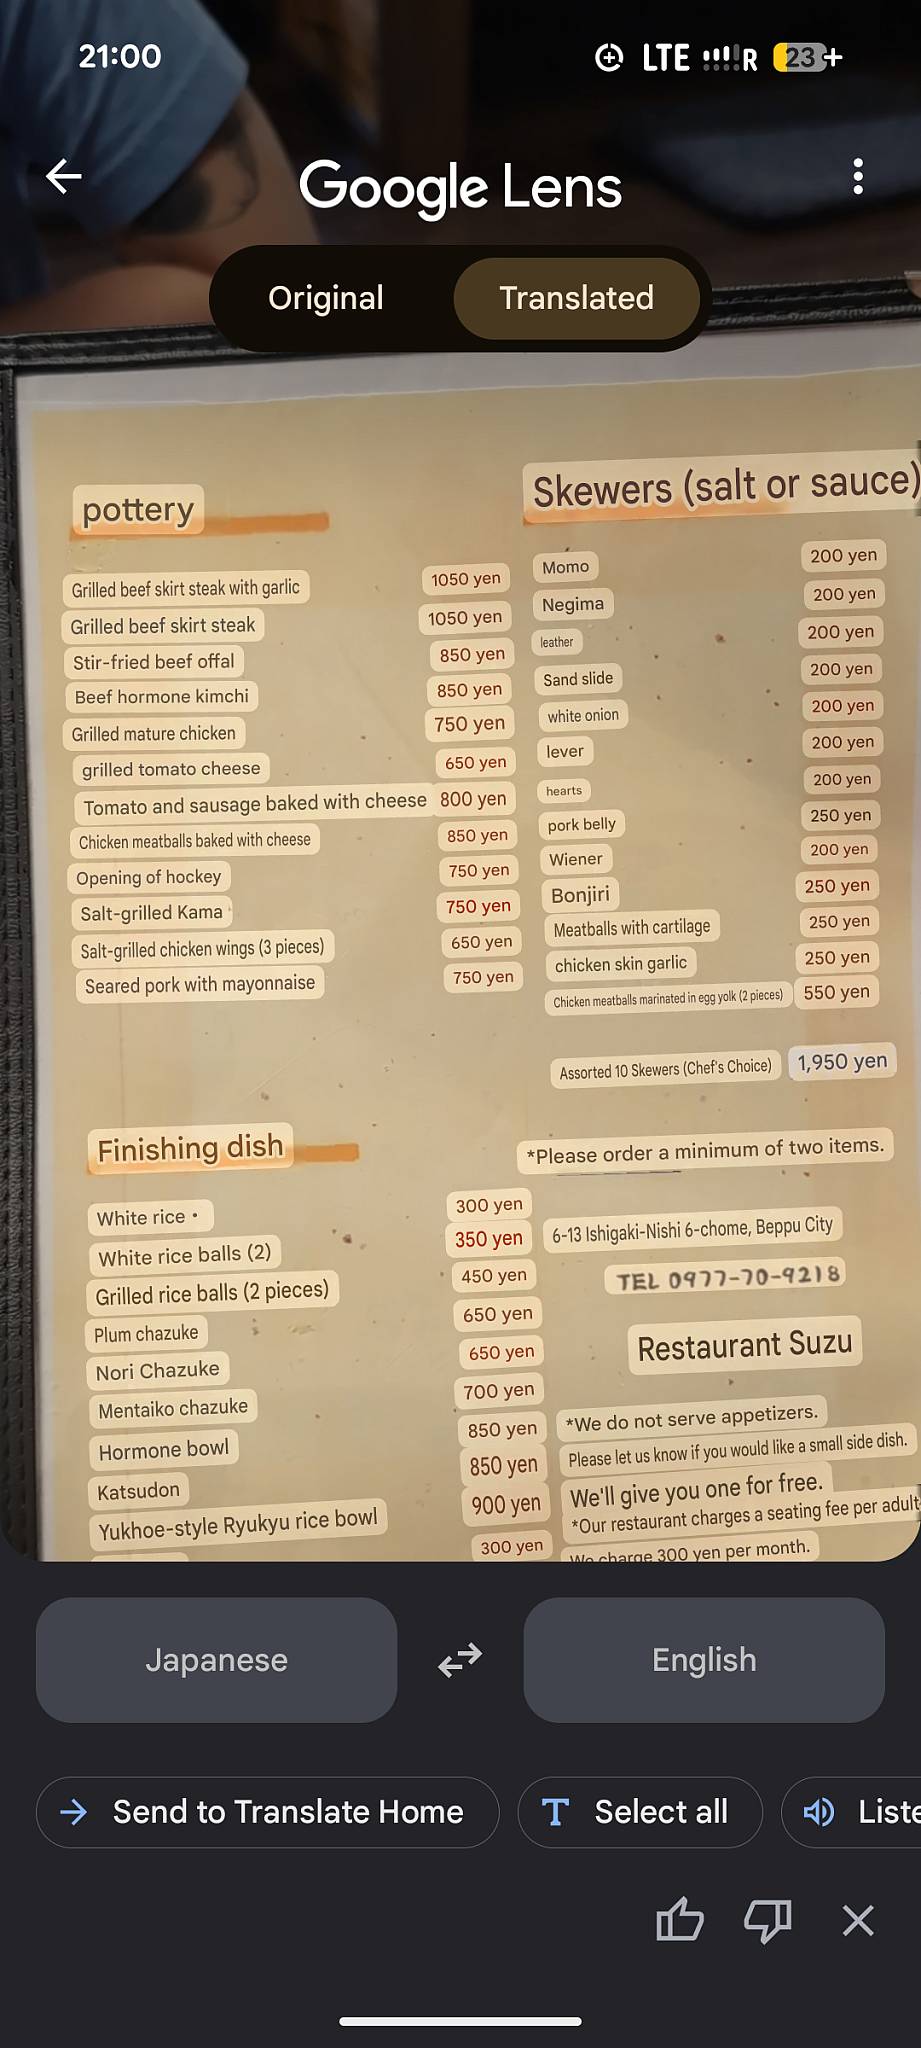 21:00
LTE R 23+
Google Lens
Original Translated
pottery
Grilled beef skirt steak with garlic 1050 yen
Grilled beef skirt steak 1050 yen
Stir-fried beef offal 850 yen
Beef hormone kimchi 850 yen
Grilled mature chicken 750 yen
grilled tomato cheese 650 yen
Tomato and sausage baked with cheese 800 yen
Chicken meatballs baked with cheese 850 yen
Opening of hockey 750 yen
Salt-grilled Kama 750 yen
Salt-grilled chicken wings (3 pieces) 650 yen
Seared pork with mayonnaise 750 yen
Skewers (salt or sauce)
Momo 200 yen
Negima 200 yen
leather 200 yen
Sand slide 200 yen
white onion 200 yen
lever 200 yen
hearts 200 yen
pork belly 250 yen
Wiener 200 yen
Bonjiri 250 yen
Meatballs with cartilage 250 yen
chicken skin garlic 250 yen
Chicken meatballs marinated in egg yolk (2 pieces) 550 yen
Assorted 10 Skewers (Chef's Choice) 1,950 yen
*Please order a minimum of two items.
Finishing dish
White rice • 300 yen
White rice balls (2) 350 yen
Grilled rice balls (2 pieces) 450 yen
Plum chazuke 650 yen
Nori Chazuke 650 yen
Mentaiko chazuke 700 yen
Hormone bowl 850 yen
Katsudon 850 yen
Yukhoe-style Ryukyu rice bowl 900 yen
300 yen
6-13 Ishigaki-Nishi 6-chome, Beppu City
TEL 0977-70-9218
Restaurant Suzu
*We do not serve appetizers.
Please let us know if you would like a small side dish.
We'll give you one for free.
*Our restaurant charges a seating fee per adult
We charge 300 yen per month.
Japanese English
Send to Translate Home Select all Liste